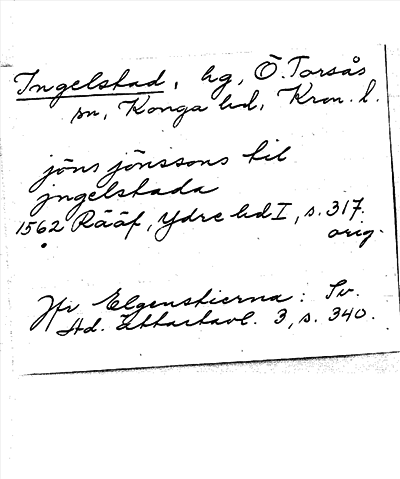 Ingelstad, hg, Ö. Torsås
sn, Konga hd, Kron. l.
jöns jönssons til
jngelstada
1562 Rääf, Ydre hd I, s. 317.
orig.
Jfr Elgenstierna: Sv.
Ad. Ättartavl. 3, s. 340.